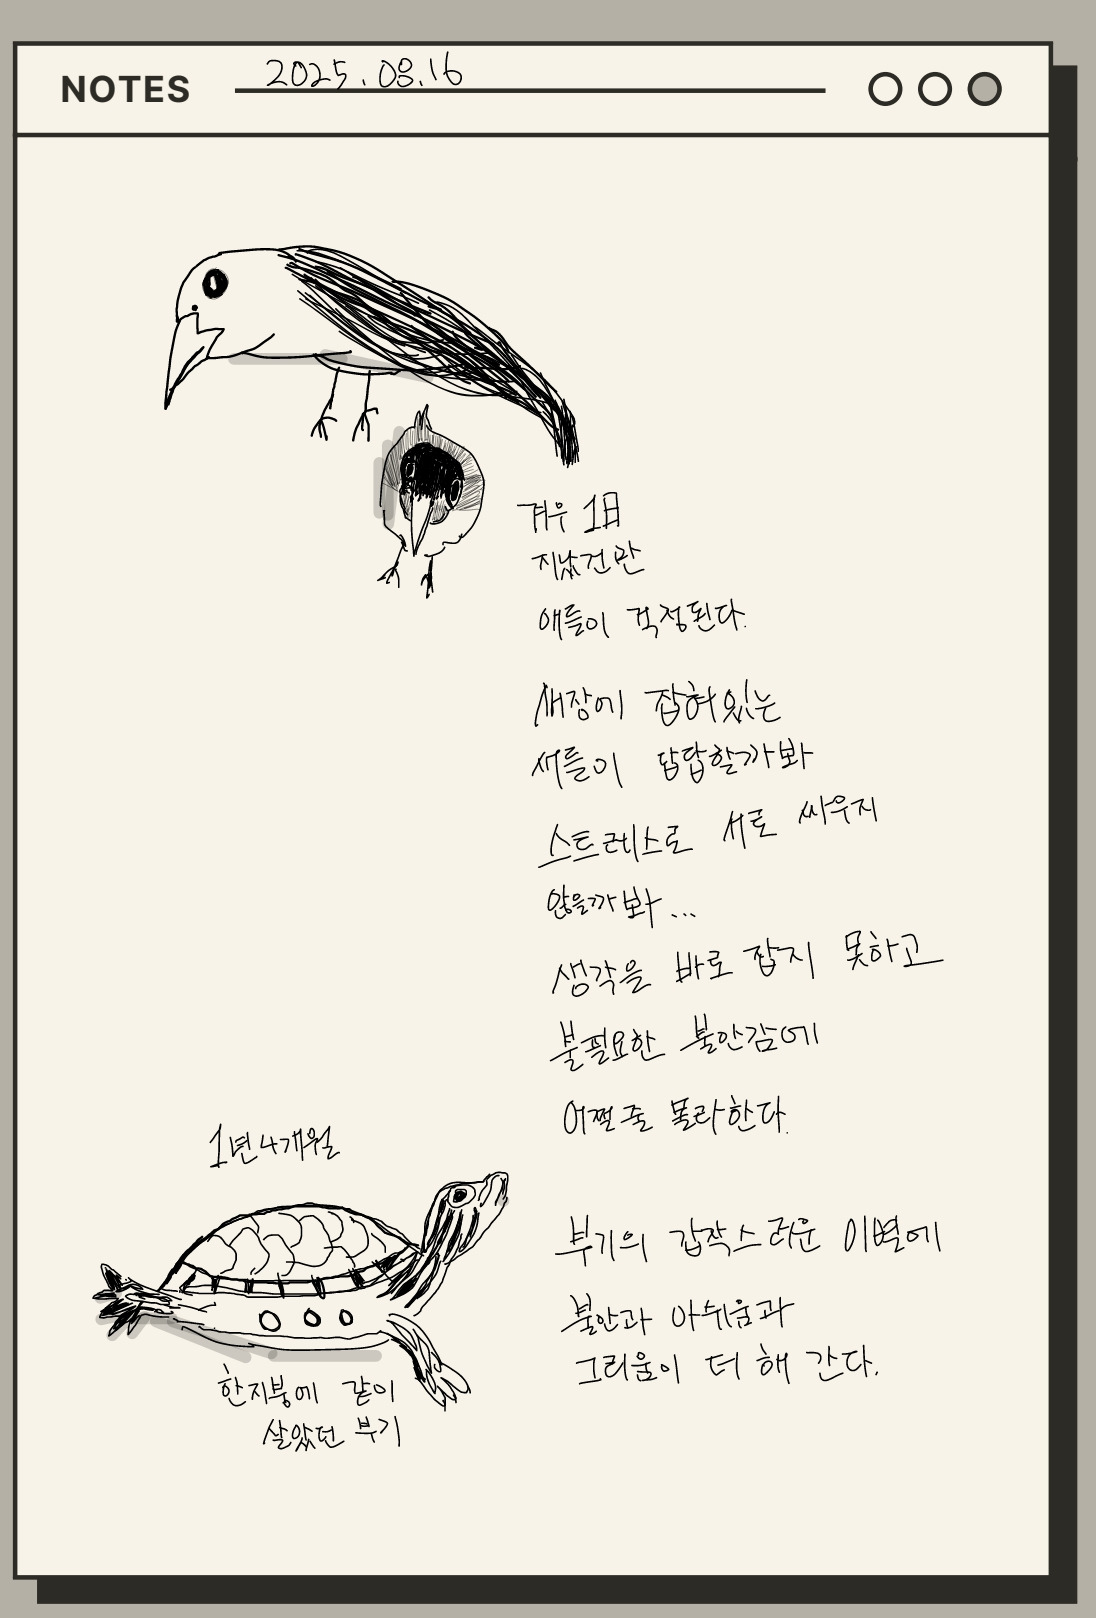 NOTES 2025.08.16
겨우 1日
지났건만
애들이 걱정된다.
새장에 잡혀있는
새들이 답답할까봐
스트레스로 서로 싸우지
않을까봐...
생각을 바로 잡지 못하고
불필요한 불안감에
어쩔 줄 몰라한다.
1년 4개월
부기의 갑작스러운 이별에
불안과 아쉬움과
그리움이 더 해 간다.
한지붕에 같이
살았던 부기